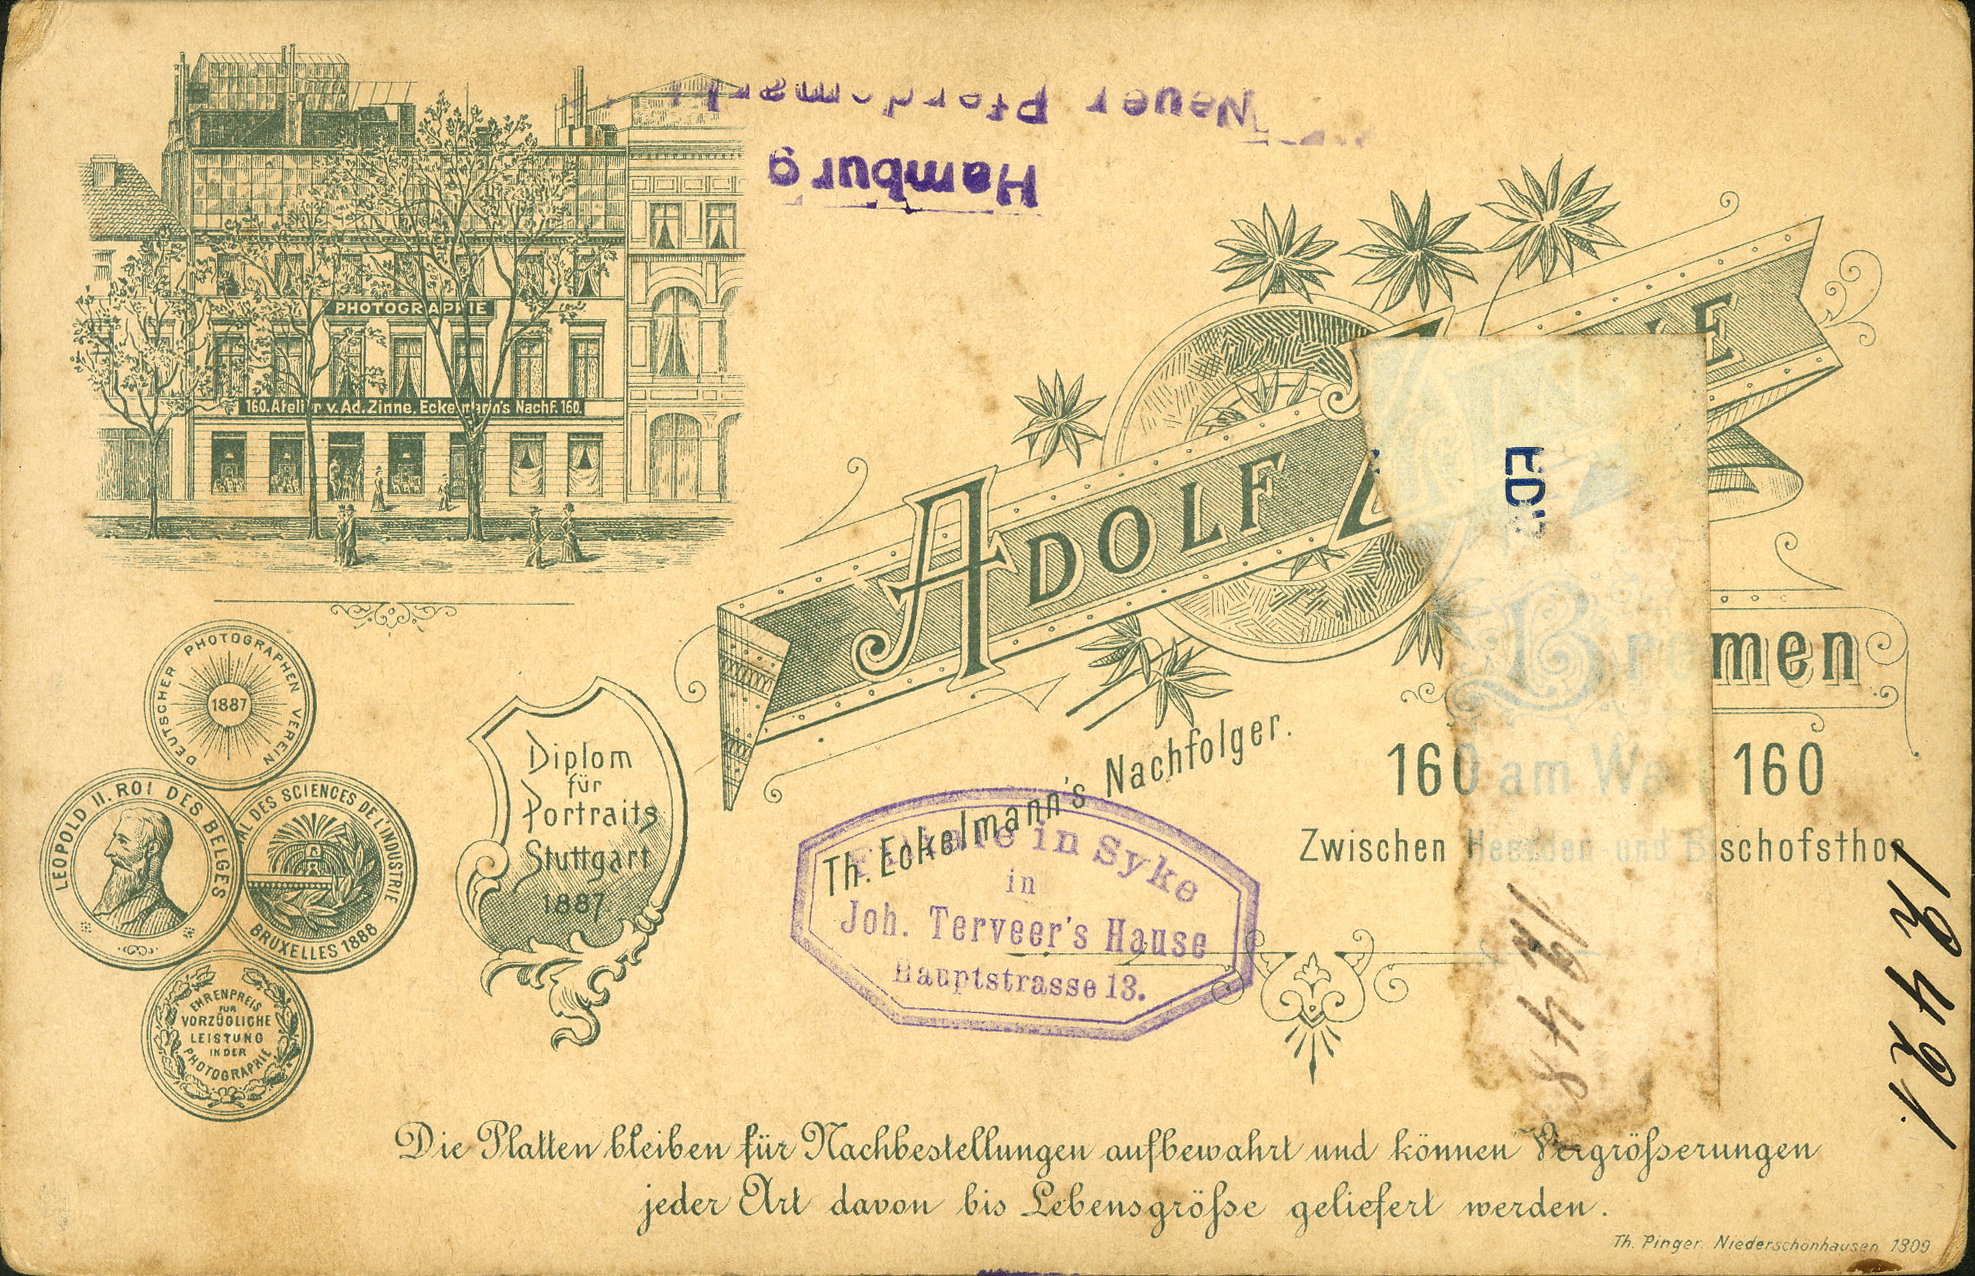 Neuer Pferdemarkt
Hamburg
PHOTOGRAPHIE
160. Atelier v. Ad. Zinne, Eckelmann's Nachf. 160.
ADOLF Z NE
ED
Bremen
DEUTSCHER PHOTOGRAPHEN VEREIN
1887
LEOPOLD II. ROI DES BELGES
DES SCIENCES DE L'INDUSTRIE
BRUXELLES 1888
EHRENPREIS
FÜR
VORZÜGLICHE
LEISTUNG
IN DER
PHOTOGRAPHIE
Diplom
für
Portraits
Stuttgart
1887
Th. Eckelmann's Nachfolger.
160 am Wall 160
Zwischen und Bischofsthor
Filiale in Syke
in
Joh. Terveer's Hause
Hauptstrasse 13.
12421.
Die Platten bleiben für Nachbestellungen aufbewahrt und können Vergrößerungen
jeder Art davon bis Lebensgröße geliefert werden.
Th. Pinger. Niederschönhausen 1309